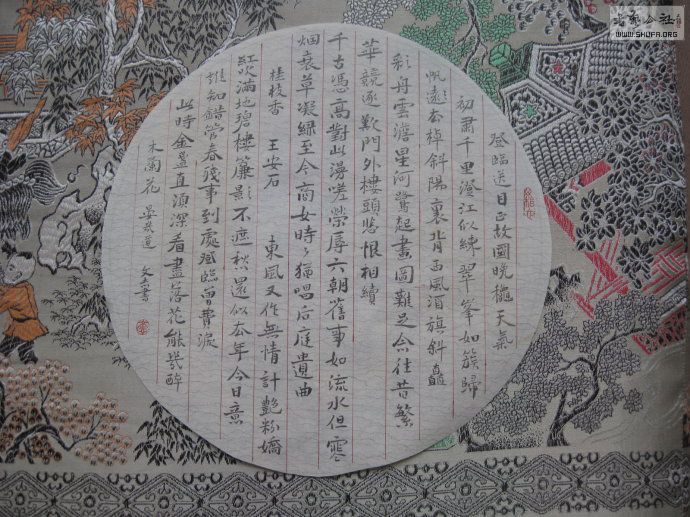 登臨送目正故國晚穐天氣
初肅千里澄江似練翠峯如簇歸
帆遠去棹斜陽裏背西風酒旗斜矗
彩舟雲澹星河鷺起畫圖難足念往昔繁
華競逐歎門外樓頭悲恨相續
千古憑高對此漫嗟榮辱六朝舊事如流水但寒
烟衰草凝綠至今商女時々猶唱后庭遺曲
桂枝香 王安石 東風又作無情計艷粉嬌
紅吹滿地碧樓簾影不遮愁還似去年今日意
誰知錯管春殘事到處登臨曾費淚
此時金盞直須深看盡落花能幾醉
木蘭花 晏幾道 文 書
书艺公社
WWW.SHUFA.ORG